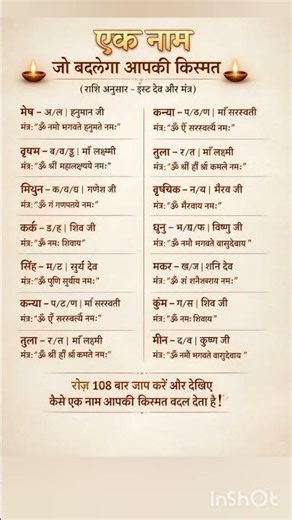 एक नाम
जो बदलेगा आपकी किस्मत
( राशि अनुसार - इष्ट देव और मंत्र )
मेष – अ/ल | हनुमान जी
मंत्र: "ॐ नमो भगवते हनुमते नमः"
वृषभ – ब/व/ड | माँ लक्ष्मी
मंत्र: "ॐ श्रीं महालक्ष्म्यै नमः"
मिथुन – क/व/घ | गणेश जी
मंत्र: "ॐ गं गणपतये नमः"
कर्क – ड/ह | शिव जी
मंत्र: "ॐ नमः शिवाय"
सिंह – म/ट | सूर्य देव
मंत्र: "ॐ घृणि सूर्याय नमः"
कन्या – प/ठ/ण | माँ सरस्वती
मंत्र: "ॐ ऐं सरस्वत्यै नमः"
तुला – र/त | माँ लक्ष्मी
मंत्र: "ॐ श्रीं ह्रीं श्रीं कमले नमः"
कन्या – प/ठ/ण | माँ सरस्वती
मंत्र: "ॐ ऐं सरस्वत्यै नमः"
तुला – र/त | माँ लक्ष्मी
मंत्र: "ॐ श्रीं ह्रीं श्रीं कमले नमः"
वृषचिक – न/य | भैरव जी
मंत्र: "ॐ भैरवाय नमः"
धनु – भ/घ/फ | विष्णु जी
मंत्र: "ॐ नमो भगवते वासुदेवाय"
मकर – ख/ज | शनि देव
मंत्र: "ॐ शं शनैश्चराय नमः"
कुंभ – ग/स | शिव जी
मंत्र: "ॐ नमः शिवाय"
मीन – द/व | कृष्ण जी
मंत्र: "ॐ नमों भगवते वासुदेवाय"
रोज़ 108 बार जाप करें और देखिए
कैसे एक नाम आपकी किस्मत वदल देता है!
InShot